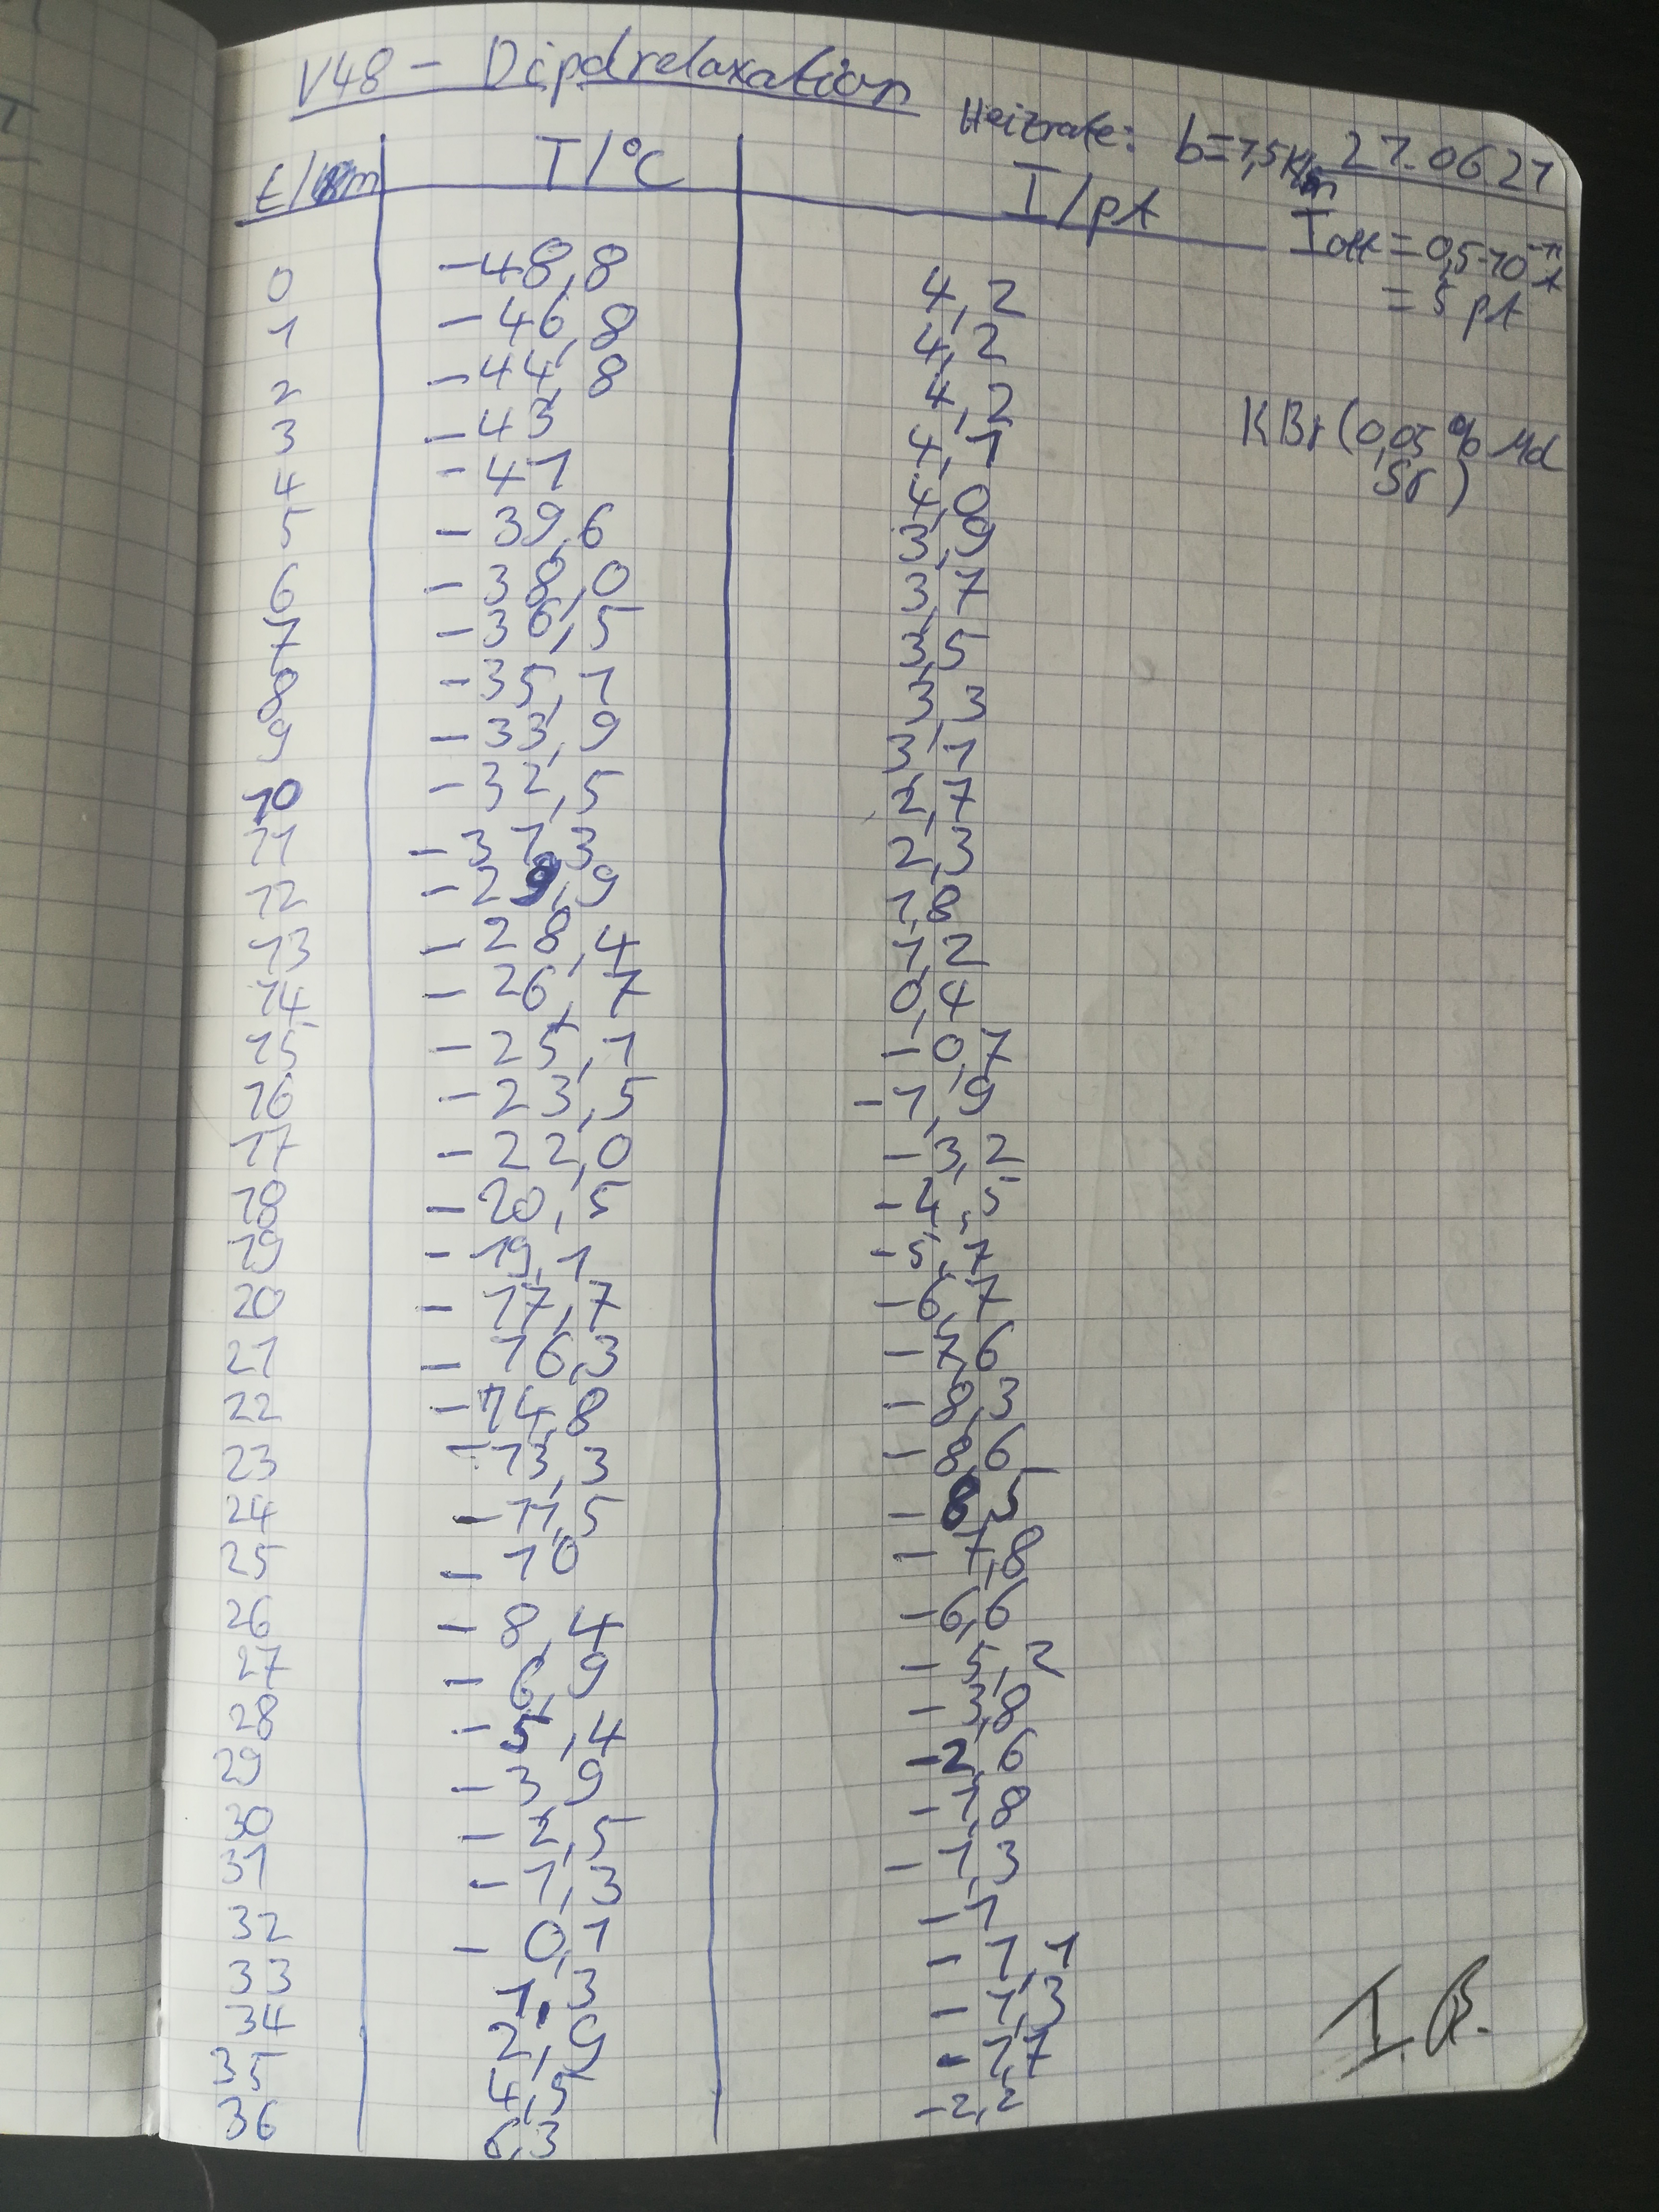 V48 - Dipolrelaxation
Heizrate: b=1,5 K/m 21.06.21
t/m T/°C I/pA
Ioff = 0,5·10⁻¹¹ A
= 5 pA
0 -48,8 4,2
1 -46,8 4,2
2 -44,8 4,2
KBr (0,05 % Mol
Sr)
3 -43 4,1
4 -41 4,0
5 -39,6 3,9
6 -38,0 3,7
7 -36,5 3,5
8 -35,1 3,3
9 -33,9 3,1
10 -32,5 2,7
11 -31,3 2,3
12 -29,9 1,8
13 -28,4 1,2
14 -26,7 0,4
15 -25,1 -0,7
16 -23,5 -1,9
17 -22,0 -3,2
18 -20,5 -4,5
19 -19,1 -5,7
20 -17,7 -6,7
21 -16,3 -7,6
22 -14,8 -8,3
23 -13,3 -8,6
24 -11,5 -8,5
25 -10 -7,8
26 -8,4 -6,6
27 -6,9 -5,2
28 -5,4 -3,8
29 -3,9 -2,6
30 -2,5 -1,8
31 -1,3 -1,3
32 -0,1 -1
33 1,3 -1,1
34 2,9 -1,3
35 4,5 -1,7
36 6,3 -2,2